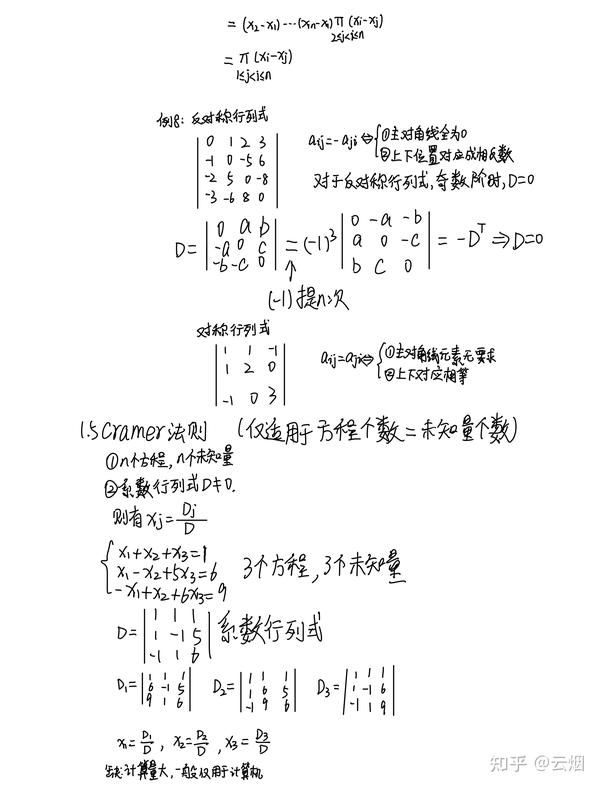 = (x₂-x₁)⋯(xn-x₁) π (xi-xj)
2≤j<i≤n
= π (xi-xj)
1≤j<i≤n
例8: 反对称行列式
| 0 1 2 3 |
| -1 0 -5 6 |
| -2 5 0 -8 |
| -3 -6 8 0 |
aij=-aji ⇔ { ①主对角线全为0
②上下位置对应成相反数
对于反对称行列式,奇数阶时,D=0
D= | 0 a b | = (-1)³ | 0 -a -b | = -Dᵀ ⇒ D=0
| -a 0 c | | a 0 -c |
| -b -c 0 | | b c 0 |
↑
(-1)提n次
对称行列式
| 1 1 -1 |
| 1 2 0 |
| -1 0 3 |
aij=aji ⇔ { ①主对角线元素无要求
②上下对应相等
1.5 Cramer法则 (仅适用于方程个数=未知量个数)
①n个方程, n个未知量
②系数行列式D≠0.
则有 xj = Dj/D
{ x₁+x₂+x₃=1
x₁-x₂+5x₃=6 3个方程, 3个未知量
-x₁+x₂+6x₃=9
D= | 1 1 1 |
| 1 -1 5 | 系数行列式
| -1 1 6 |
D₁= | 1 1 1 | D₂= | 1 1 1 | D₃= | 1 1 1 |
| 6 -1 5 | | 1 6 5 | | 1 -1 6 |
| 9 1 6 | | -1 9 6 | | -1 1 9 |
x₁= D₁/D , x₂= D₂/D , x₃= D₃/D
计算量大, 一般仅用于计算机
知乎 @云烟